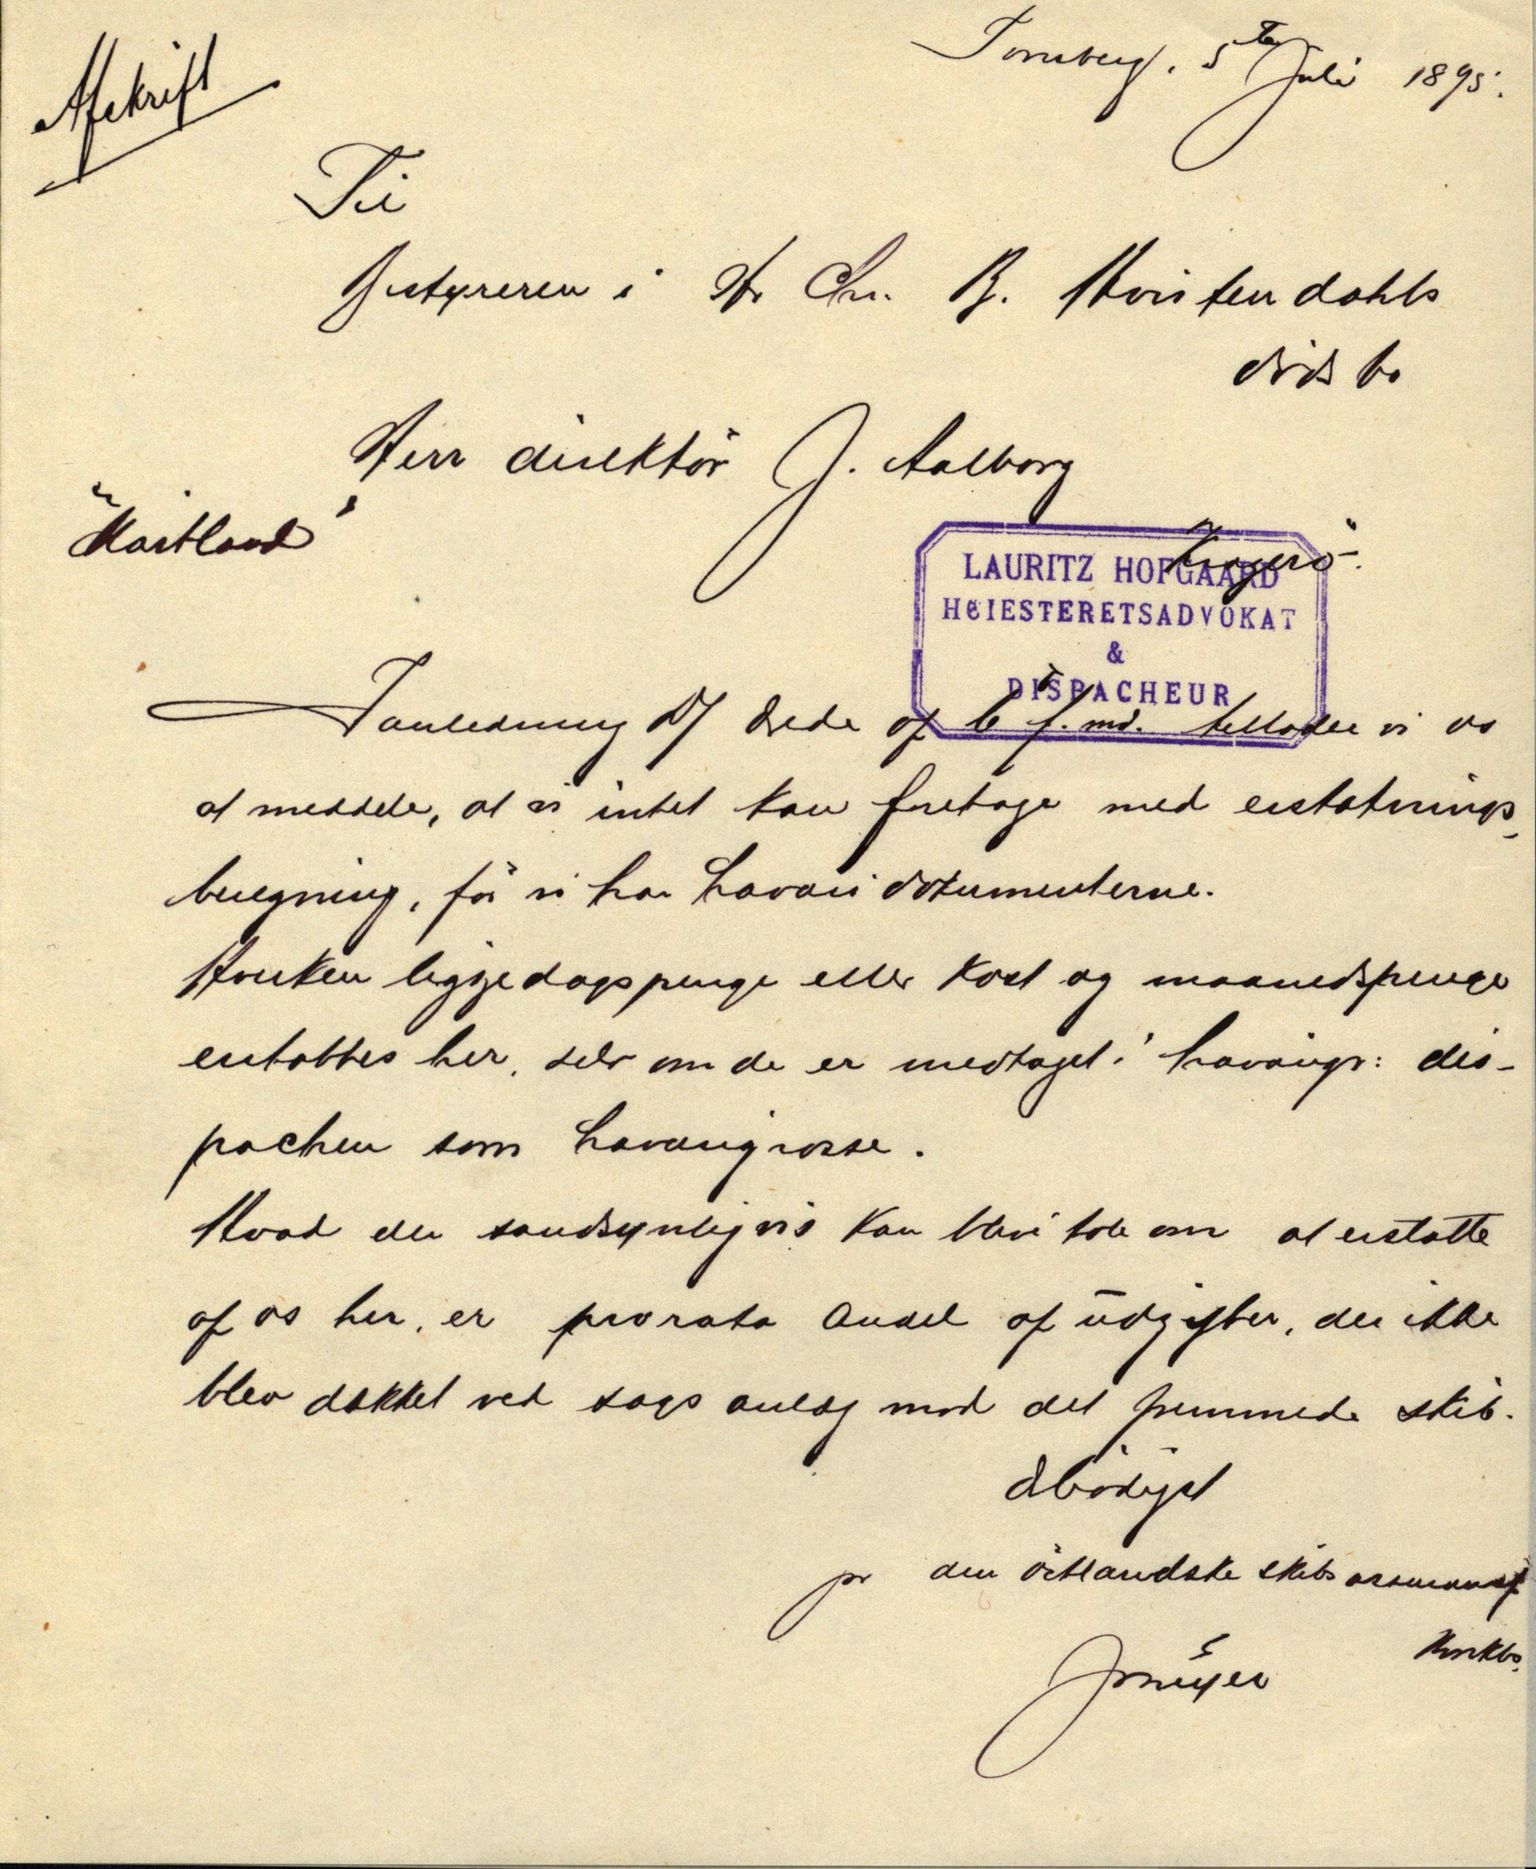 Afskrift
Tønsberg, 5te Juli 1895.
Til
Bestyreren i Hr Chr. B. Hvistendahls
dödsbo
Herr direktör J. Aalborg
"Haitland"
Kragerö.
LAURITZ HOFGAARD
HØIESTERETSADVOKAT
&
DISPACHEUR
I anledning Df ærede af f. md. tillader vi os
at meddele, at vi intet kan foretage med erstatnings-
beregning, för vi har havaridokumenterne.
Hverken liggedagspenge eller kost og maanedspenge
erstattes her, selv om de er medtaget i havarigr: dis-
pachen som havarigrosse.
Hvad der sandsynligvis kan blive tale om at erstatte
af os her, er prorata andel af udgifter, der ikke
blev dækket ved sagsanlæg mod det fremmede skib.
Ærbödigst
pr den östlandske skibsassurancef
JMeyer